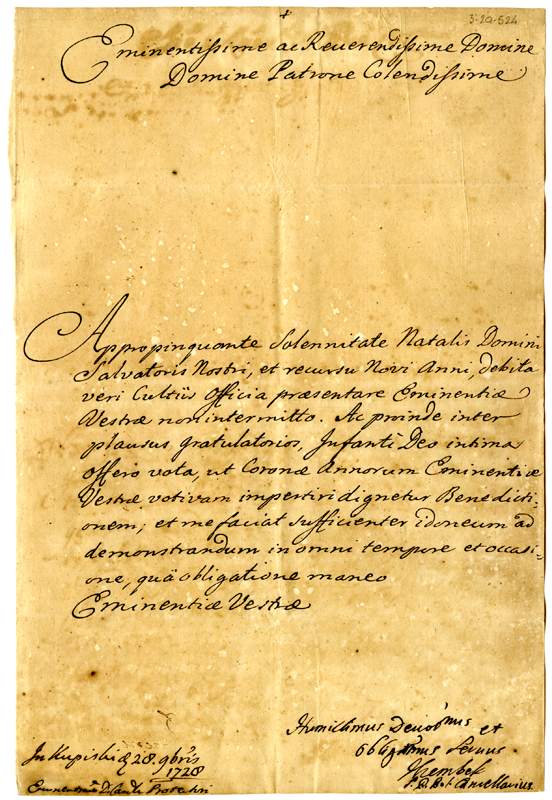 3-20-524
Eminentissime ac Reverendissime Domine
Domine Patrone Colendissime
Appropinquante Solennitate Natalis Domini
Salvatoris Nostri, et recursu Novi Anni, debita
veri Cultûs Officia præsentare Eminentiæ
Vestræ non intermitto. Ac proinde inter
plausus gratulatorios, Infanti Deo intima
Offero vota, ut Coronæ Annorum Eminentiæ
Vestræ votivam impertiri dignetur Benedicti-
onem; et me faciat sufficienter idoneum ad
demonstrandum in omni tempore et occasi-
one, quâ obligatione maneo
Eminentiæ Vestræ
Humilimus Devotmus et
obligatmus Servus
28. 9bris
1728